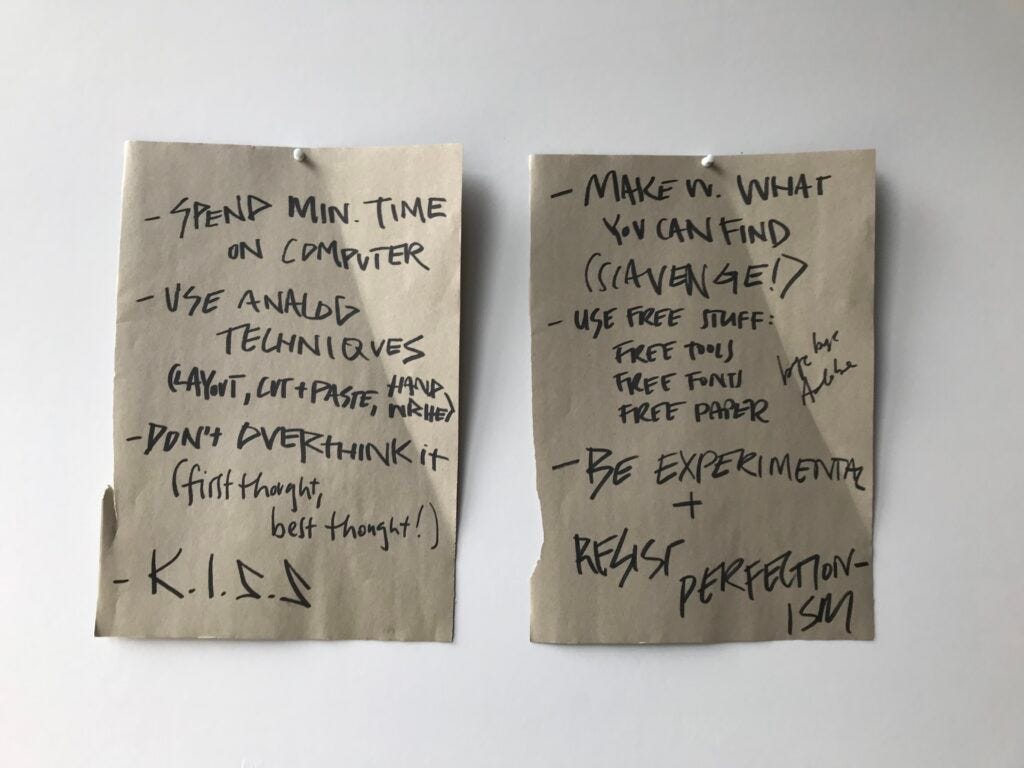 - SPEND MIN. TIME
ON COMPUTER
- USE ANALOG
TECHNIQUES
(LAYOUT, CUT + PASTE, HAND
WRITE)
- DON'T OVERTHINK IT
(first thought,
best thought!)
- K.I.S.S
- MAKE W. WHAT
YOU CAN FIND
(SCAVENGE!)
- USE FREE STUFF:
FREE TOOLS
FREE FONTS
FREE PAPER
bye bye
Adobe
- BE EXPERIMENTAL
+
RESIST
PERFECTION-
ISM